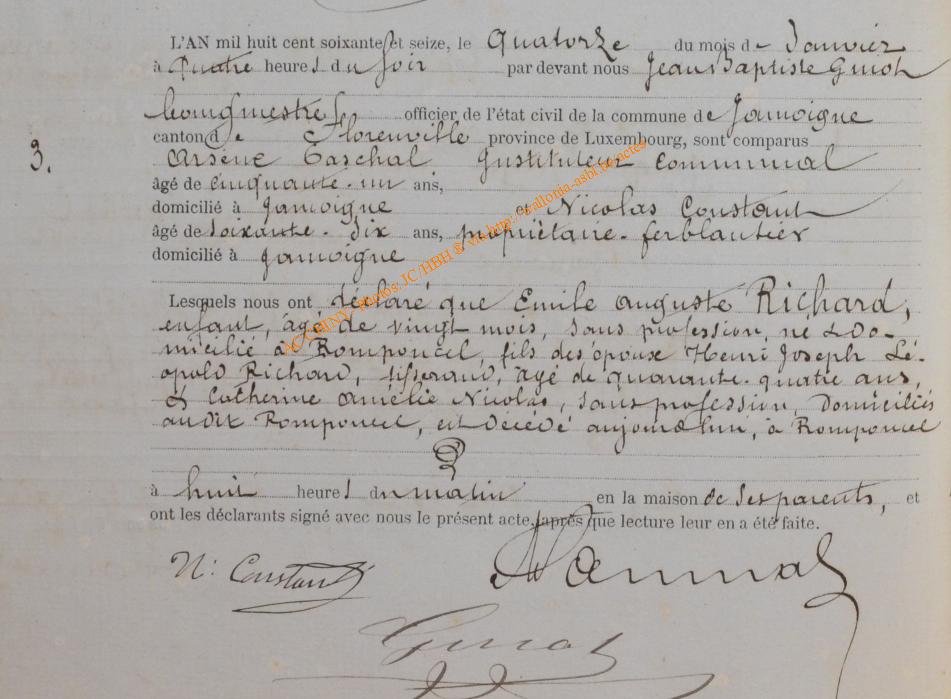 L'AN mil huit cent soixante et seize, le quatorze du mois de Janvier
à quatre heures du soir par devant nous Jean Baptiste Guiot
bourgmestre officier de l'état civil de la commune de Jamoigne
3.
canton de Florenville province de Luxembourg, sont comparus
Arsène Paschal Instituteur communal
âgé de cinquante-un ans,
domicilié à Jamoigne et Nicolas Constant
âgé de soixante-dix ans, propriétaire-ferblantier
domicilié à Jamoigne
Lesquels nous ont déclaré que Emile Auguste Richard,
enfant, âgé de vingt mois, sans profession, né & do-
micilié à Romponcel, fils des époux Henri Joseph Lé-
opold Richard, tisserand, âgé de quarante-quatre ans,
& Catherine Amélie Nicolas, sans profession, domiciliés
audit Romponcel, est décédé aujourd'hui, à Romponcel
à huit heures du matin en la maison de ses parents, et
ont les déclarants signé avec nous le présent acte, après que lecture leur en a été faite.
N: Constant
Guiot